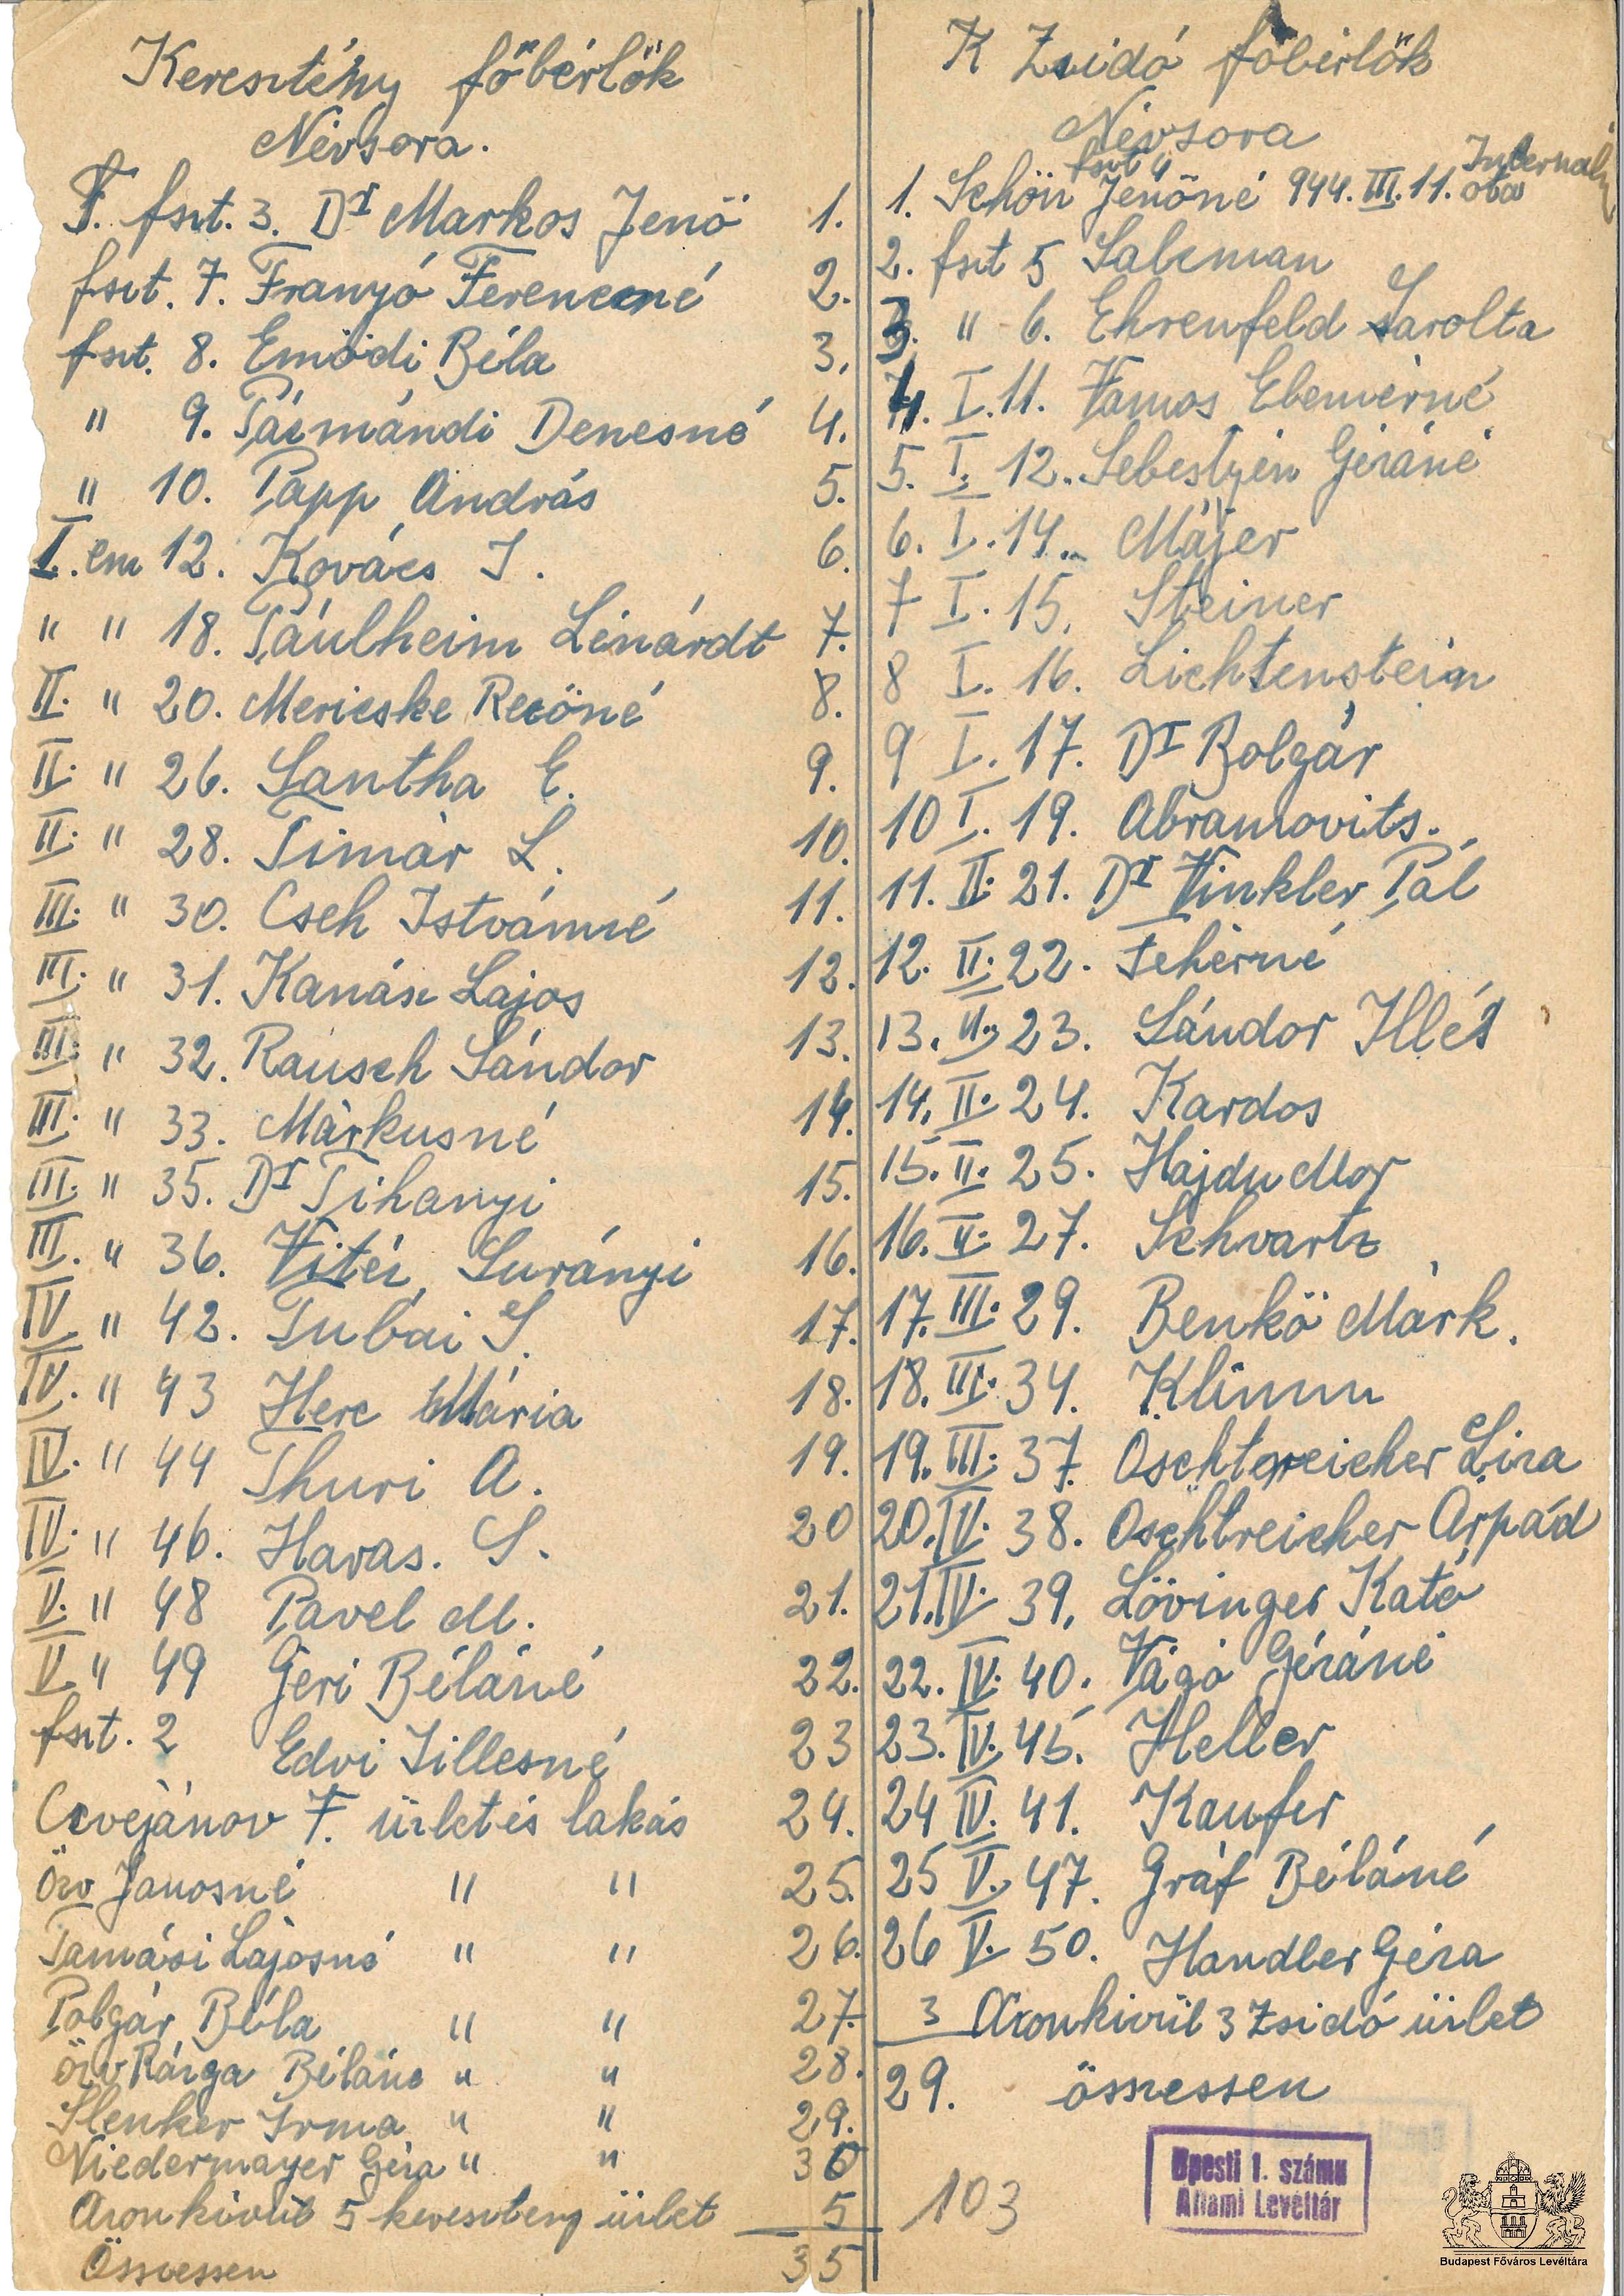 Keresztény főbérlők
Névsora.
F. fszt. 3. Dr Markos Jenő 1.
fszt. 7. Franyó Ferencné 2.
fszt. 8. Emődi Béla 3.
" 9. Pázmándi Denesné 4.
" 10. Papp András 5.
I. em 12. Kovács I. 6.
" " 18. Páulheim Lénárdt 7.
II. " 20. Mericske Rezőné 8.
II. " 26. Santha E. 9.
II. " 28. Timár L. 10.
III. " 30. Cseh Istvánné 11.
III. " 31. Kanász Lajos 12.
III. " 32. Rausch Sándor 13.
III. " 33. Márkusné 14.
III. " 35. Dr Tihanyi 15.
III. " 36. Vitéz Surányi 16.
IV " 42. Tubai S. 17.
IV. " 43 Herc Mária 18.
IV. " 44 Thuri A. 19.
IV. " 46. Havas. S. 20
V. " 48 Pavel M. 21.
V. " 49 Geri Béláné 22.
fszt. 2 Edvi Illésné 23
Cvejánov F. üzlet és lakás 24.
Özv Janosné " " 25.
Tamási Lajosné " " 26.
Polgár Béla " " 27.
Özv Várga Béláné " " 28.
Slenker Irma " " 29.
Niedermayer Géza " " 30
Azonkivül 5 keresztény üzlet 5
Összessen 35
K Zsidó főbérlők
Névsora
fszt 4
1. Schön Jenőné 944. III. 11. óta
2. fszt 5 Salzman
3. " 6. Ehrenfeld Sarolta
4. I. 11. Vamos Ebenérné
5. I. 12. Sebestyén Gézáné
6. I. 14. Májer
7 I. 15. Steiner
8 I. 16. Lichtenstein
9 I. 17. Dr Bolgár
10 I. 19. Abramovits.
11. II. 21. Dr Vinkler Pál
12. II. 22. Fehérné
13. II. 23. Sándor Illés
14. II. 24. Kardos
15. II. 25. Hajdu Mor
16. II. 27. Schvartz
17. III. 29. Benkő Márk.
18. III. 34. Klimm
19. III. 37. Oschtereicher Liza
20. IV. 38. Oschtreicher Árpád
21. IV. 39. Lövinger Kató
22. IV. 40. Vágó Gézáné
23. IV. 45. Heller
24 IV. 41. Kaufer
25 V. 47. Gráf Béláné
26 V. 50. Handler Géza
3 Azonkivül 3 Zsidó üzlet
29. összessen
103
Bpesti 1. számú
Állami Levéltár
Budapest Főváros Levéltára